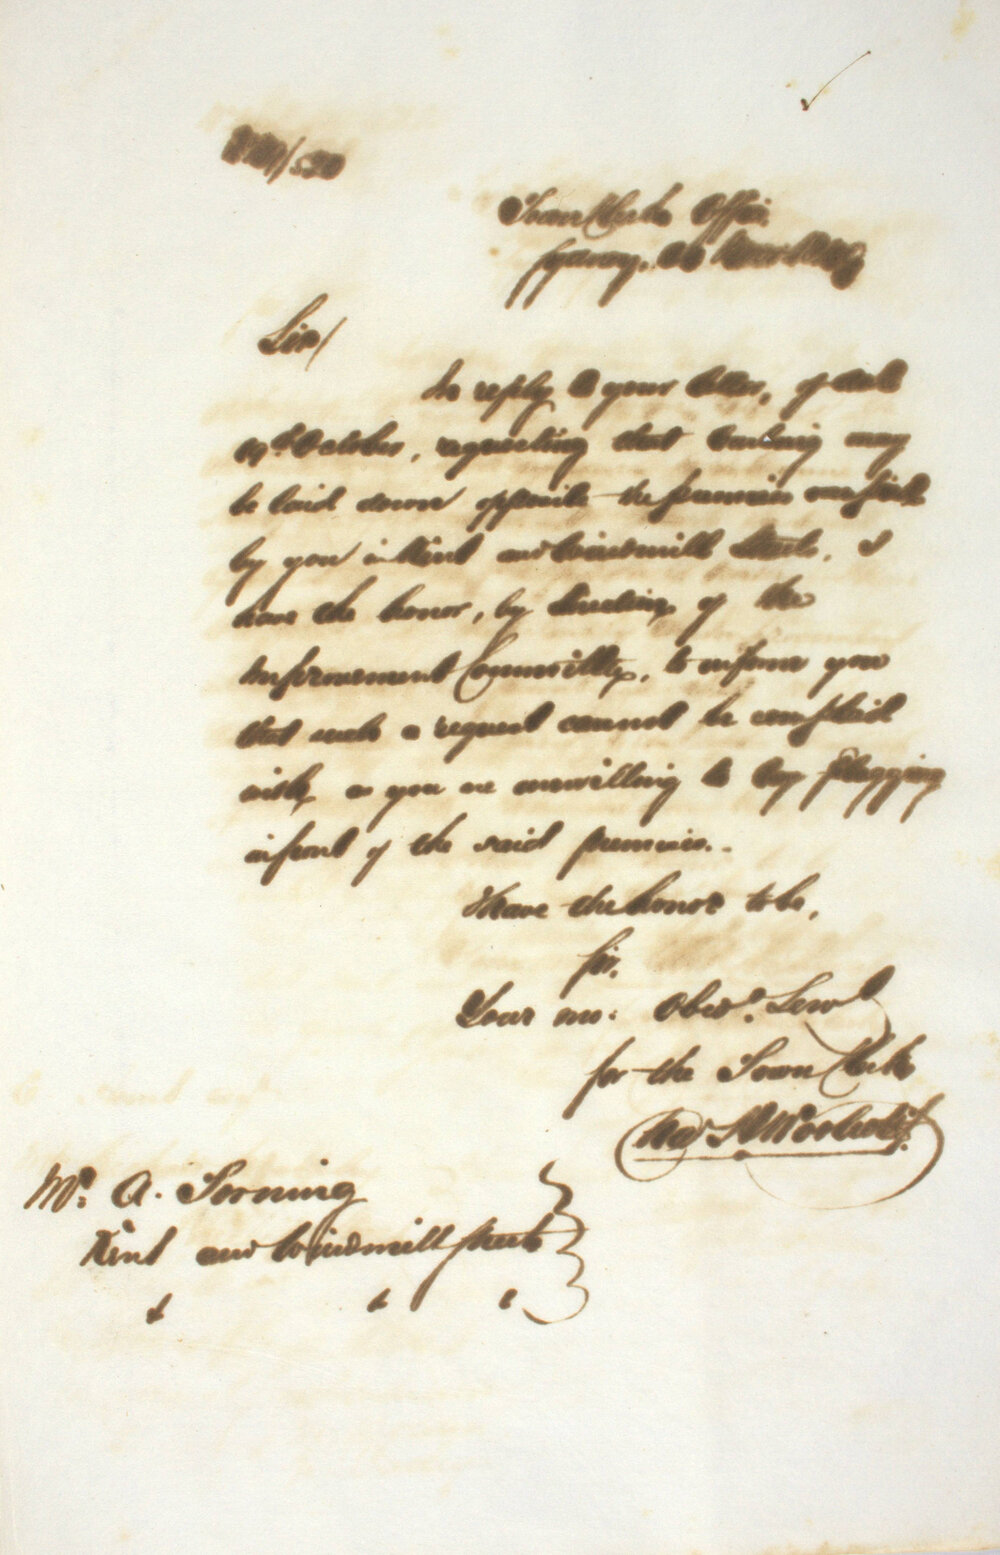 /520
Town Clerks Office
Sydney,
Sir/
In reply to your letter, of date
October, requesting that may
be laid down opposite the premises
by you in Kent and Windmill Streets, I
have the honor, by direction of the
Improvement Committee, to inform you
that such a request cannot be complied
with, as you are unwilling to lay flagging
in front of the said premises.
I have the honor to be,
Sir,
Your mo: Obedt. Servt
for the Town Clerk
Mr. A.
Kent and Windmill Streets